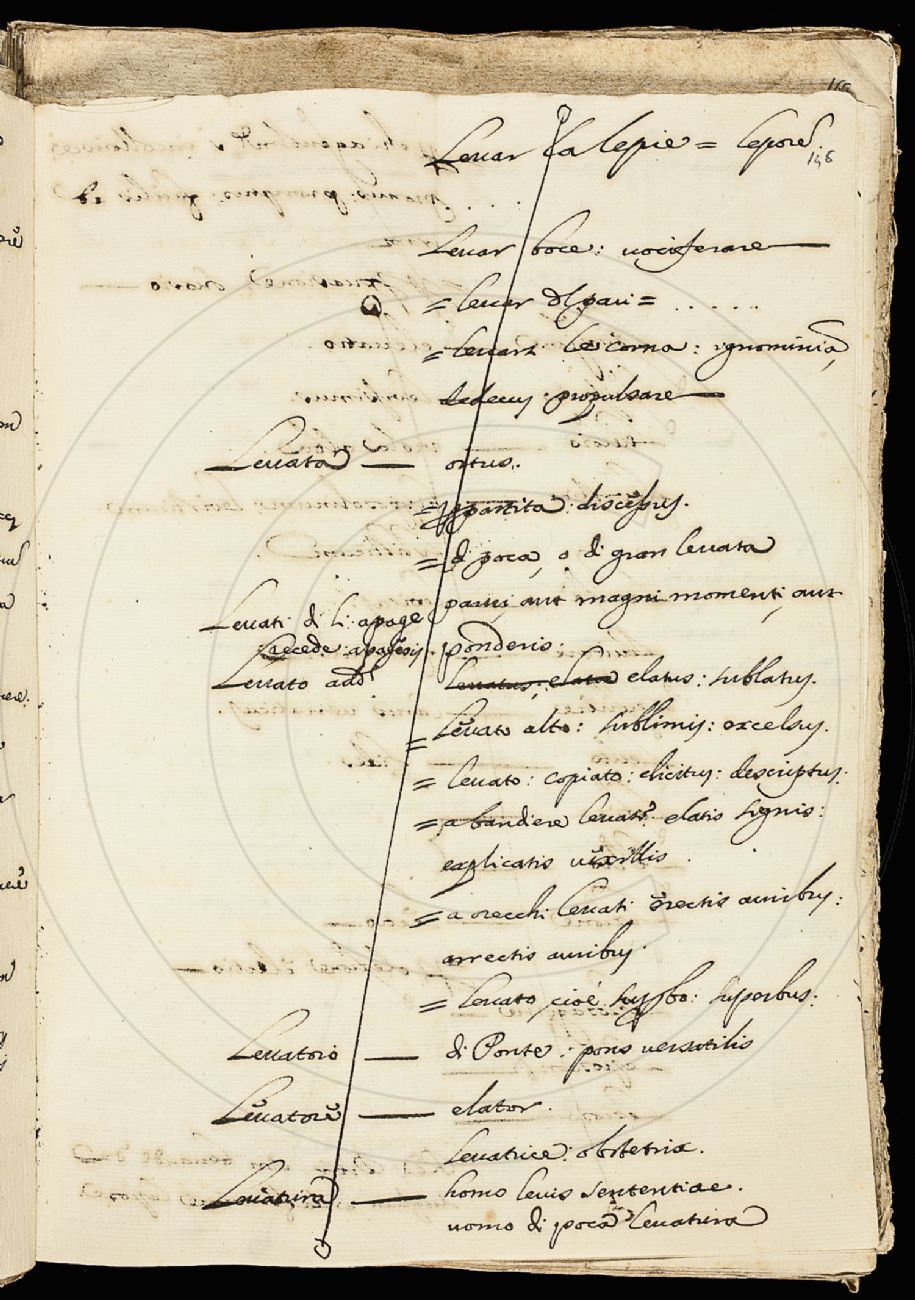 Leuar la lepre = lepore
146
Leuar boce: uociferare
= leuar di pari = . . . . .
= leuars le corna: ignominia,
dedecus propulsare
Leuata — ortus.
= partita: discessus.
= di poca, o di gran leuata
parui, aut magni momenti, aut
ponderis.
Leuati di li: apage
recede: apagesis.
Leuato add. leuatus; elatus elatus: sublatus.
= Leuato alto: sublimis: excelsus.
= leuato: copiato: elicitus: descriptus:
= a bandiere leuate. elatis signis:
explicatis uexillis.
= a orecchi leuati erectis auribus:
arrectis auribus.
= leuato, cioè superbo: superbus:
Leuatoio — di Ponte: pons uersatilis
Leuatore — elator.
leuatrice: obstetrix.
Leuatura — homo leuis sententiae.
uomo di poca leuatura